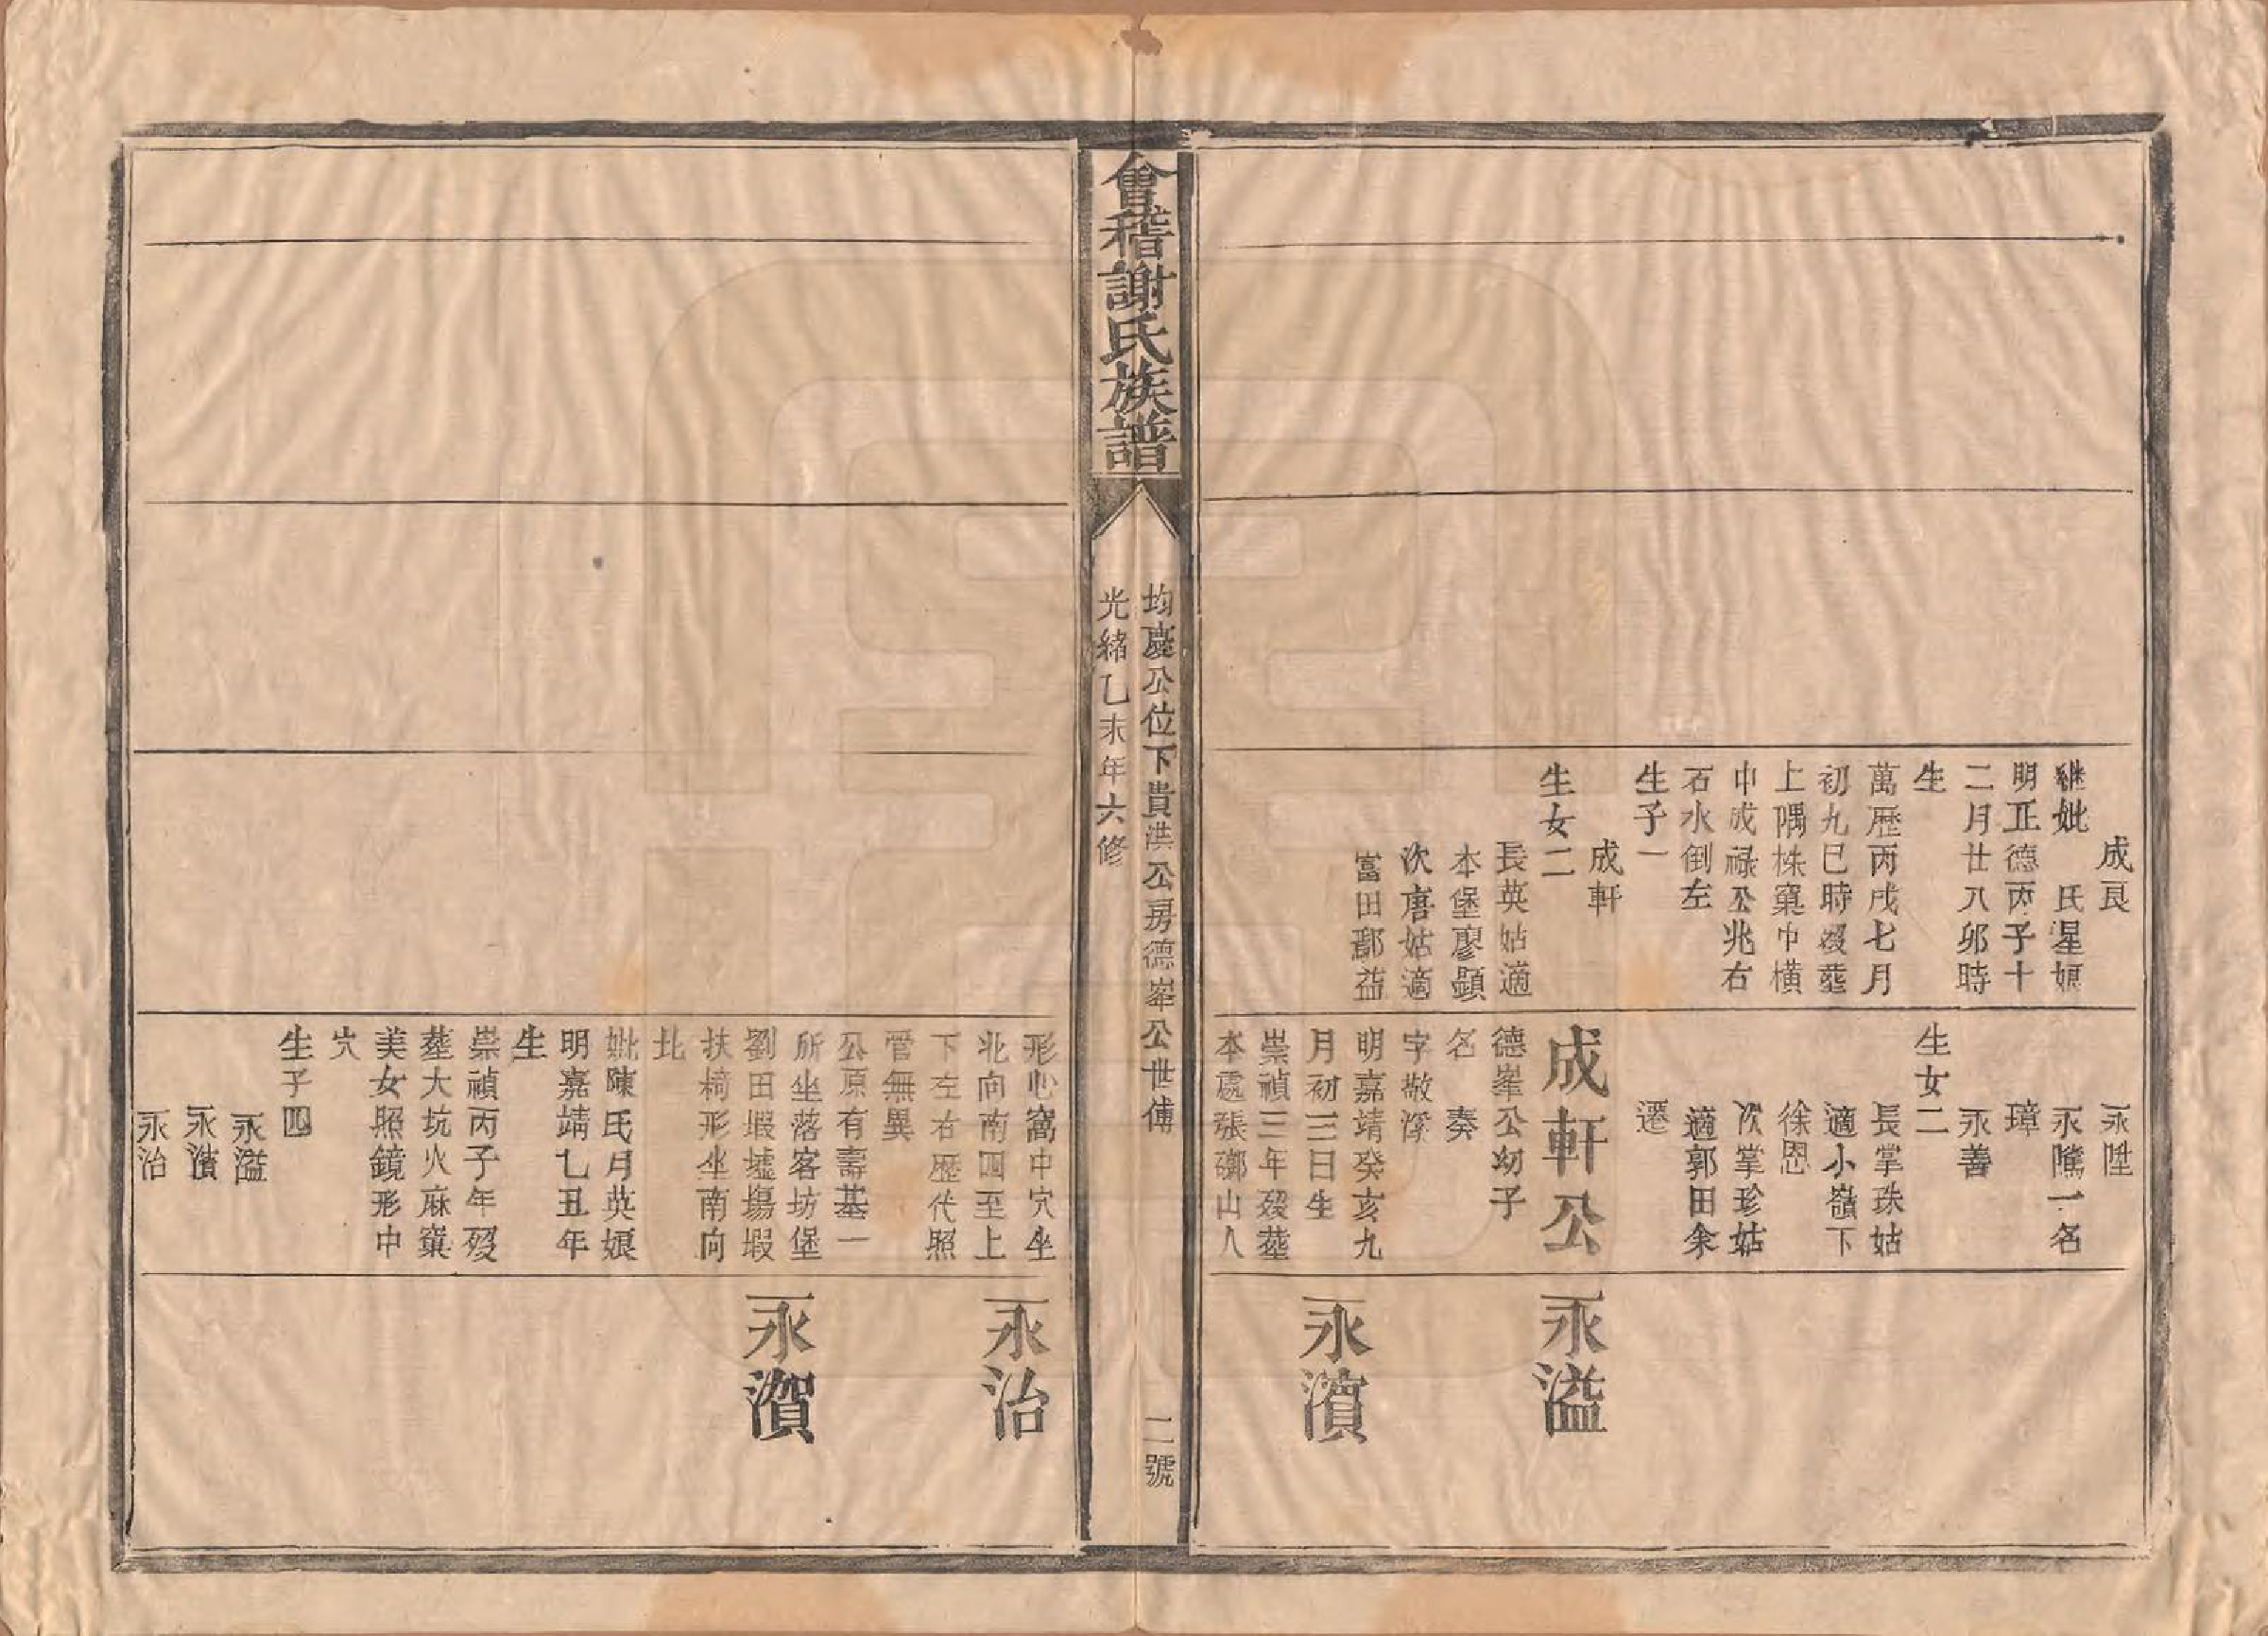 成艮
継妣　氏星娘
明正德丙子十
二月廿八卯時
生
萬歷丙戌七月
初九巳時歿塟
上隅株窠中橫
中成祿公兆右
石水倒左
生子一
成軒
生女二
長英姑適
本堡廖顕
次唐姑適
富田鄢益
永陞
永隲一名
璋
永善
生女二
長掌珠姑
適小嶺下
徐恩
次掌珍姑
適郭田余
遷
成軒公
德峯公幼子
名　奏
字敬淳
明嘉靖癸亥九
月初三日生
崇禎三年歿塟
本處張𨻶山人
永溢
永濱
會稽謝氏族譜
均慶公位下貴洪公房德峯公世傳
二號
光緒乙未年六修
形心窩中穴坐
北向南四至上
下左右歷代照
管無異
公原有壽基一
所坐落客坊堡
劉田塅墟塲塅
扶椅形坐南向
北
妣陳氏月英娘
明嘉靖乚丑年
生
崇禎丙子年歿
塟大坑火麻窠
美女照鏡形中
穴
生子四
永溢
永濱
永治
永治
永濱